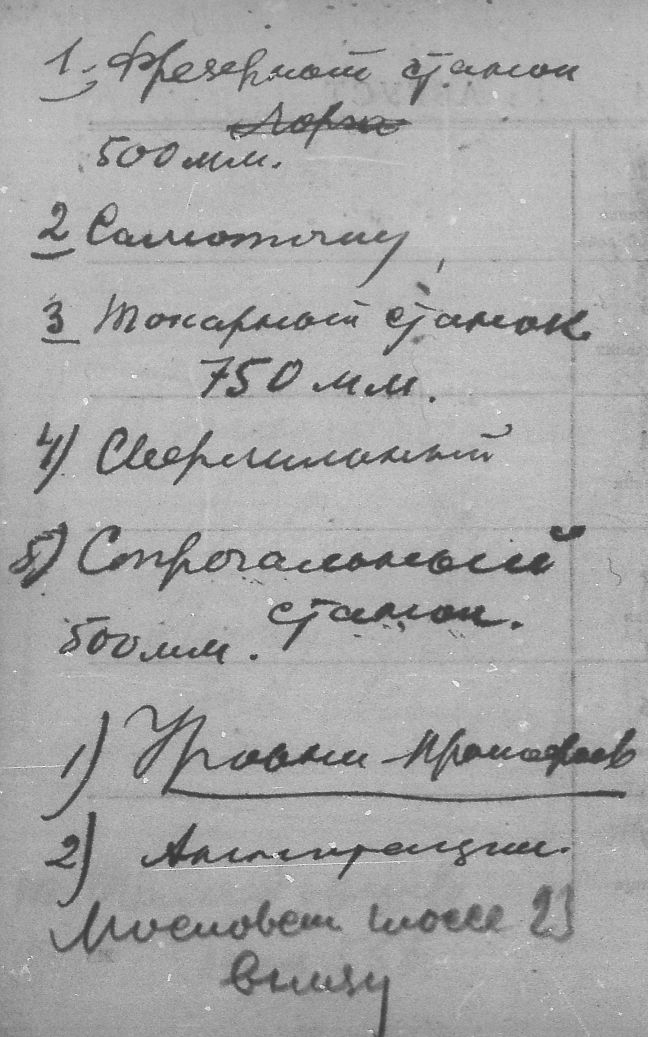 1. Фрезерный станок
500 мм.
2 Самоточку
3 Токарный станок
750 мм.
4) Сверлильный
5) Строгальный
станок.
500 мм.
1) Уровни
2)
Московск шоссе 23
внизу